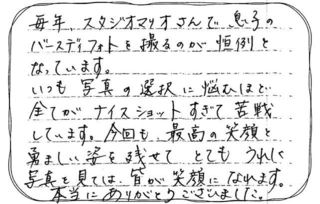 毎年、スタジオマリオさんで息子の
バースディフォトを撮るのが恒例と
なっています。
いつも写真の選択に悩むほど
全てがナイスショットすぎて苦戦
しています。今回も、最高の笑顔と
勇ましい姿を残せて とても うれしく
写真を見ては、皆が笑顔になれます。
本当にありがとうございました。